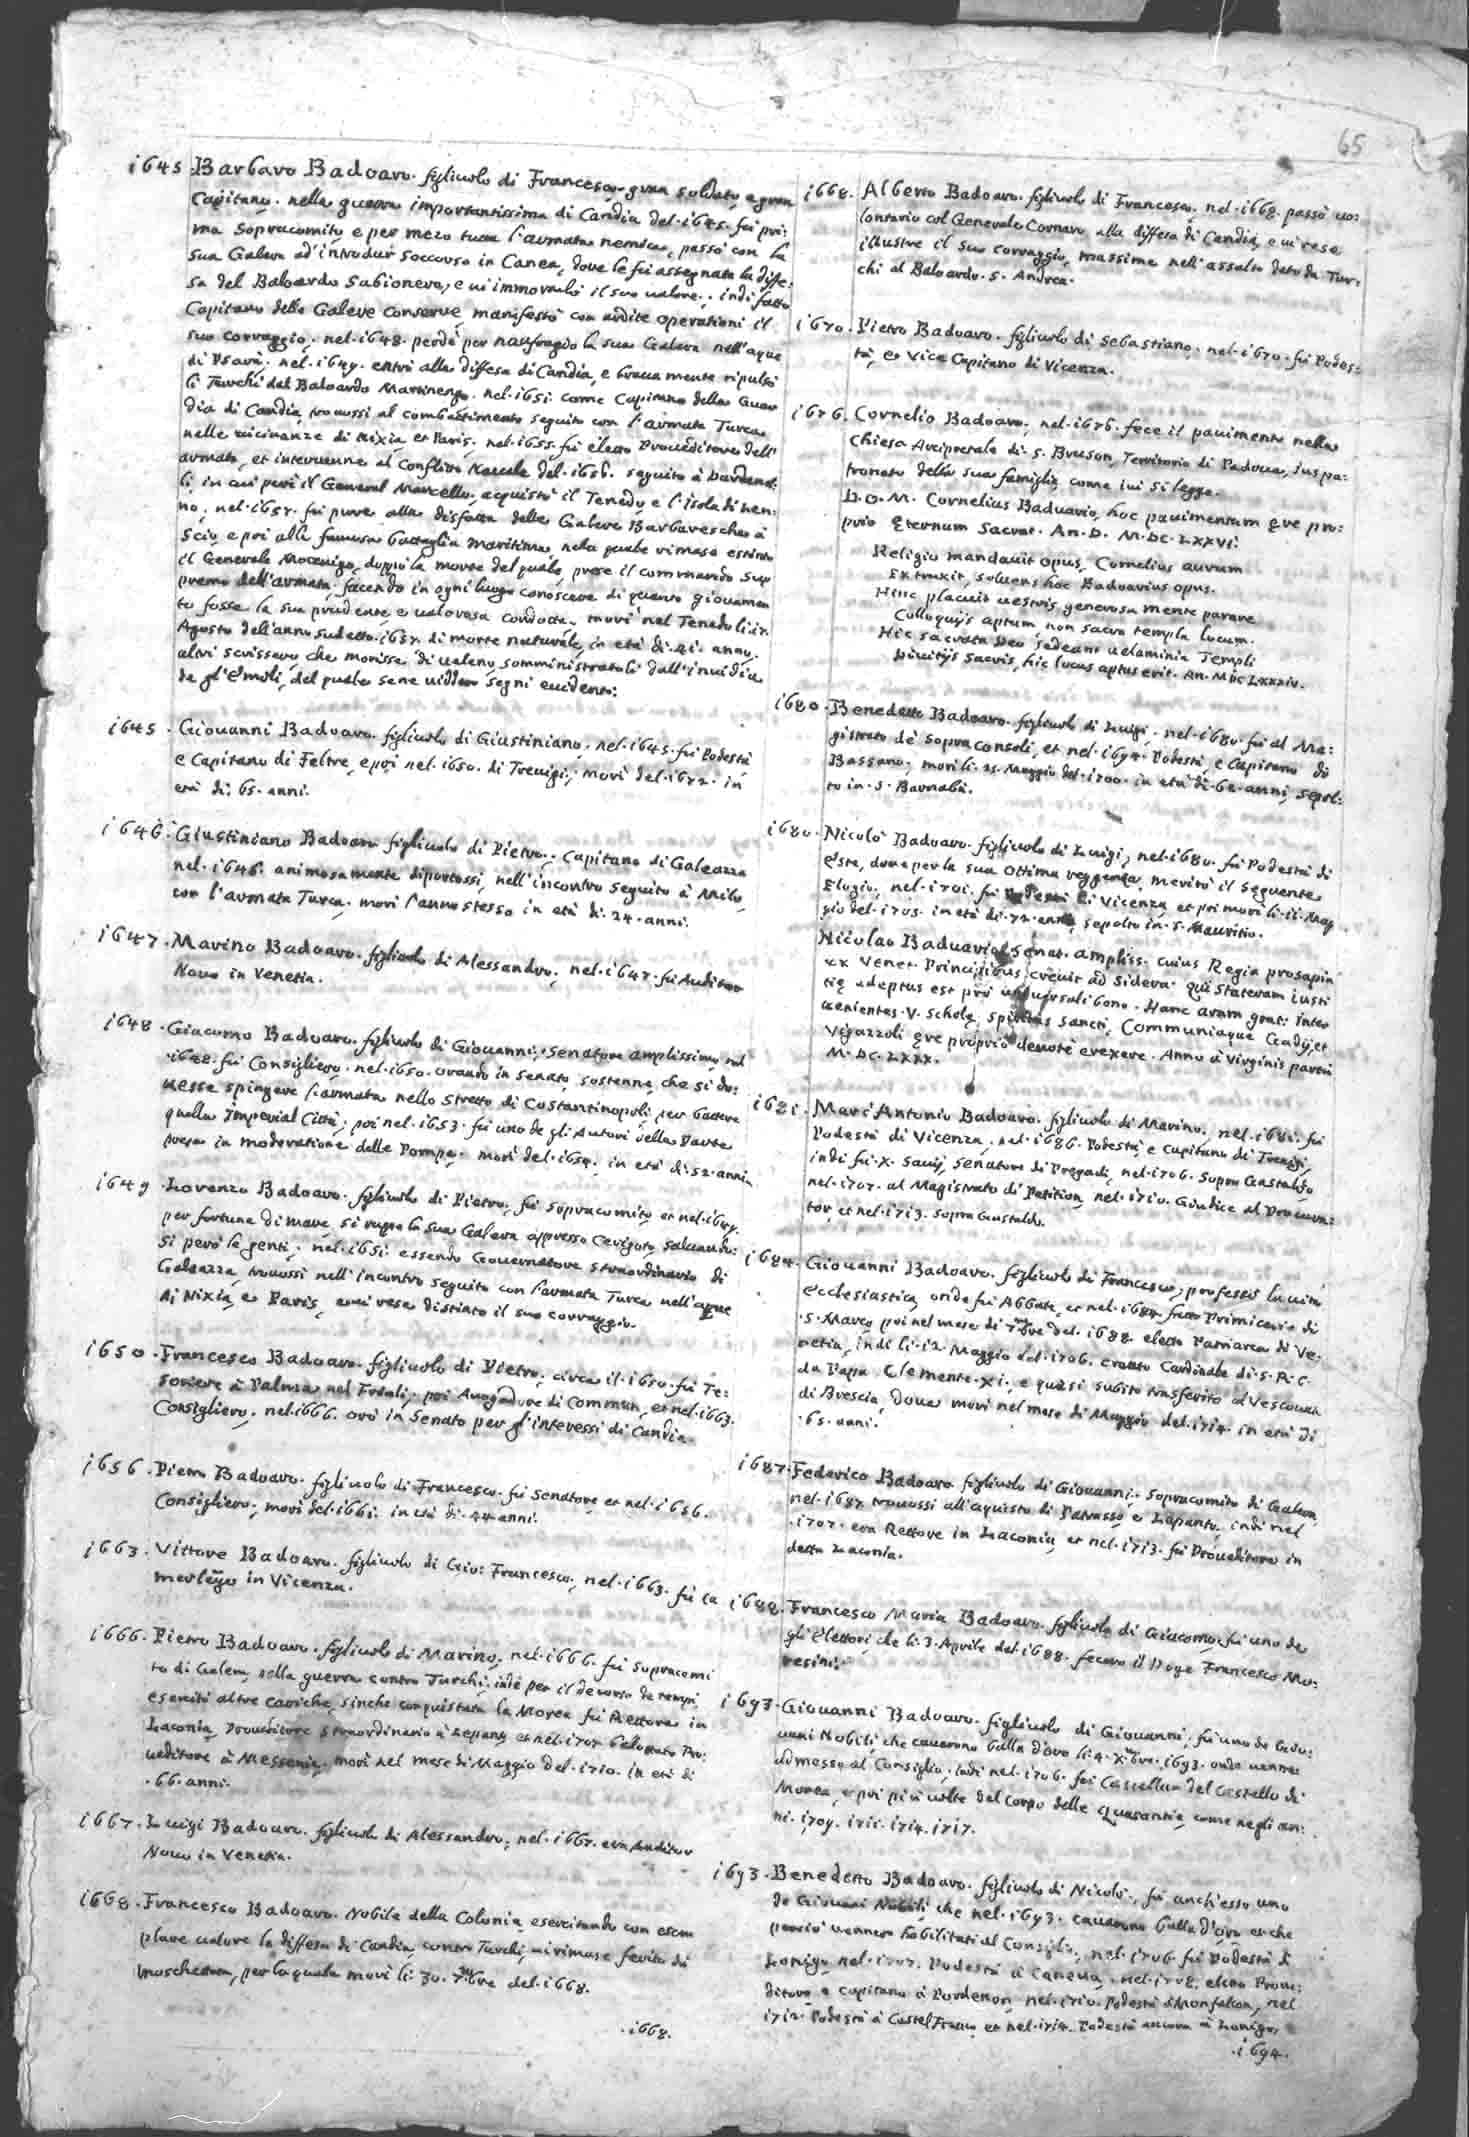 65
1645. Barbaro Badoaro. figliuolo di Francesco, gran soldato, e gran
Capitano. nella guerra importantissima di Candia del. 1645. fu pri:
ma Sopracomito, e per mezo tutta l'armata nemica, passò con la
sua Galera ad' introdur soccorso in Canea, dove le fu assegnata la diffe:
sa del Baloardo Sabionera, e ui immortalò il suo ualore; indi fatto
Capitano delle Galere Conserve, manifestò con ardite operationi il
suo corraggio. nel. 1648. perdè per naufragio la sua Galera nell'aque
di Psarà. nel. 1649. entrò alla diffesa di Candia, e brava mente ripulsò
li Turchi dal Baloardo Martinengo. nel. 1651. come Capitano della Guar
dia di Candia, trouossi al combattimento seguito con l'armata Turca
nelle uicinanze di Nixia, et Paris. nel. 1655. fu eletto Proueditore dell'
armata, et interuenne al Conflitto Nauale del. 1656. seguito à Dardanel:
li, in cui perì il General Marcello. acquistò il Tenedo, e l'Isola di Lem:
no, nel. 1657. fu pure alla disfatta delle Galere Barbaresche à
Scio, e poi alla famosa battaglia maritima, nela quale rimase estinto
il Generale Mocenigo, doppò la morte del quale, prese il commando Sup
premo dell'armata, facendo in ogni luogo conoscere di quanto giouamen
to fosse la sua prudente, e ualorosa condotta. morì nel Tenedo li. 17.
Agosto dell'anno sudetto. 1657. di morte naturale, in età di. 41. anno.
altri scrissero, che morisse di ueleno, somministratoli dall'inuidia
de gl'Emoli, del quale sene uiddero segni euidenti.
1645. Giouanni Badoaro. figliuolo di Giustiniano, nel. 1645. fu Podestà
e Capitano di Feltre, e poi nel. 1650. di Treuigi, morì del. 1672. in
età di. 65. anni.
1646. Giustiniano Badoaro figliuolo di Pietro. Capitano di Galeazza
nel. 1646. animosamente diportossi, nell'incontro seguito à Milo,
con l'armata Turca. morì l'anno stesso in età di. 24. anni.
1647. Marino Badoaro. figliuolo di Alessandro, nel. 1647. fu Auditor
Nouo in Venetia.
1648. Giacomo Badoaro. figliuolo di Giouanni, Senatore amplissimo, nel
.1648. fu Consigliero. nel. 1650. orando in Senato, sostenne, che si do:
uesse spingere l'armata nello Stretto di Costantinopoli, per battere
quella Imperial Città. poi nel. 1653. fu uno de gli Autori della Parte
presa in moderatione delle Pompe. morì del. 1654. in età di. 52. anni.
1649. Lorenzo Badoaro. figliuolo di Pietro, fu Sopracomito, et nel. 1649.
per fortuna di mare, si ruppe la sua Galera appresso Cerigoto, saluando:
si però le genti. nel. 1651. essendo Gouernatore straordinario di
Galeazza, trouossi nell'incontro seguito con l'armata Turca nell'aque
di Nixia, e Paris, e ui rese distinto il suo corraggio.
1650. Francesco Badoaro. figliuolo di Pietro, circa il. 1650. fu Te:
soriere à Palma nel Friuli, poi Auogadore di Commun, et nel. 1663.
Consigliero. nel. 1666. orò in Senato per gl'interessi di Candia.
1656. Piero Badoaro. figliuolo di Francesco. fu Senatore et nel. 1656.
Consigliero. morì del. 1661. in età di. 44. anni.
1663. Vittore Badoaro. figliuolo di Gio: Francesco, nel. 1663. fù Ca
merlengo in Vicenza.
1666. Pietro Badoaro. figliuolo di Marino, nel. 1666. fu Sopracomi
to di Galera, nella guerra contro Turchi, indi per il decorso de tempi,
esercitò altre cariche, sinche conquistata la Morea fu Rettore in
Laconia, Proueditore straordinario à Lepanto et nel. 1708. Pro:
ueditore à Messenia. morì nel mese di Maggio del. 1710. in età di
.66. anni.
1667. Luigi Badoaro. figliuolo di Alessandro, nel. 1667. era Auditor
Nouo in Venetia.
1668. Francesco Badoaro. Nobile della Colonia, esercitando con esem
plare ualore la diffesa di Candia, contro Turchi, ui rimase ferito di
moschettata, per la quale morì li. 30. 7mbre del. 1668.
.1668.
1668. Alberto Badoaro. figliuolo di Francesco, nel. 1668. passò uo:
lontario col Generale Cornaro alla diffesa di Candia, e ui rese
illustre il suo corraggio, massime nell'assalto dato da Tur:
chi al Baloardo. S. Andrea.
1670. Pietro Badoaro. figliuolo di Sebastiano, nel. 1670. fu Podes:
tà, et Vice Capitano di Vicenza.
1676. Cornelio Badoaro, nel. 1676. fece il pauimento nella
Chiesa Arcipretale di. S. Bruson, Territorio di Padoua, Juspa:
tronato della sua famiglia, come iui si legge.
D. O. M. Cornelius Baduario, hoc pauimentum ęre pro:
prio Ęternum Sacrat. An. D. M. DC. LXXVI.
Religio mandauit opus, Cornelius aurum
Extraxit, soluens hoc Badoarius opus.
Hinc placuit uestris generosa mente parare
Colloquijs aptum non sacra templa locum.
Hic sacrata Deo sedeant uelaminia Templi
Diuitijs sacris, hic locus aptus erit. An. MDCLXXXIV.
1680. Benedetto Badoaro. figliuolo di Luigi. nel. 1680. fu al Ma:
gistrato de Sopraconsoli, et nel. 1694. Podestà, e Capitano di
Bassano. morì li. 25. Maggio del. 1700. in età di. 62. anni, sepol:
to in. S. Barnabà.
1680. Nicolò Badoaro. figliuolo di Luigi, nel. 1680. fu Podestà di
Este, doue per la sua Ottima reggenza, meritò il seguente
Elogio. nel. 1701. fu Podestà di Vicenza, et poi morì li. 11. Mag
gio del. 1705. in età di. 72. anni, sepolto in. S. Mauritio.
Nicolao Baduario Senat. ampliss. cuius Regia prosapia
ex Venet. Principibus creuit ad Sidera. qui Stateram iusti
tię adeptus est pro uniuersali bono. Hanc aram grat: inter
uenientes. V. Scholę, Spiritus Sancti, Communiaque Ceadij, et
Vigazzoli ęre proprio deuotè erexere. Anno à Virginis partu
M. DC. LXXX.
1681. Marc'Antonio Badoaro. figliuolo di Marino, nel. 1681. fu
Podestà di Vicenza, nel. 1686. Podestà, e Capitano di Treuigi,
indi fu. X. Sauij, Senatore di Pregadi, nel. 1706. Sopra Gastaldo
nel. 1707. al Magistrato di Petition, nel. 1710. Giudice al Procura:
tor, et nel. 1713. Sopra Gastaldo.
1684. Giouanni Badoaro. figliuolo di Francesco, professò la uita
Ecclesiastica, onde fu Abbate, et nel. 1684. fatto Primicerio di
.S. Marco, poi nel mese di 7mbre del. 1688. eletto Patriarca di Ve:
netia, indi li. 12. Maggio del. 1706. creato Cardinale di. S. R. C.
da Papa Clemente. XI., e quasi subito trasferito al Vescouà
di Brescia, doue morì nel mese di Maggio del. 1714. in età di
.65. anni.
1687. Federico Badoaro figliuolo di Giouanni. Sopracomito di Galera,
nel. 1687. trouossi all'aquisto di Patrasso, e Lepanto. indi nel
.1707. era Rettore in Laconia, et nel. 1713. fu Proueditore in
detta Laconia.
1688. Francesco Maria Badoaro. figliuolo di Giacomo, fu uno de
gli Elettori, che li. 3. Aprile del. 1688. fecero il Doge Francesco Mo:
resini.
1693. Giouanni Badoaro. figliuolo di Giouanni, fu uno de Gio:
uani Nobili, che cauarono balla d'oro li. 4. Xmbre. 1693. onde uenne
admesso al Consiglio. indi nel. 1706. fu Castellan del Castello di
Morea, e poi più uolte del Corpo delle Quarantie, come negli an:
ni. 1709. 1711. 1714. 1717.
1693. Benedetto Badoaro. figliuolo di Nicolò, fu anch'esso uno
de Giouani Nobili, che nel. 1693. cauarono balla d'oro, et che
perciò uennero habilitati al Consiglio, nel. 1706. fu Podestà di
Lonigo, nel. 1707. Podestà à Caneua. nel. 1708. eletto Proue:
ditore, e capitano à Pordenon, nel. 1710. Podestà à Monfalcon, nel
1712. Podestà à Castel Franco, et nel. 1714. Podestà ancora à Lonigo,
.1694.